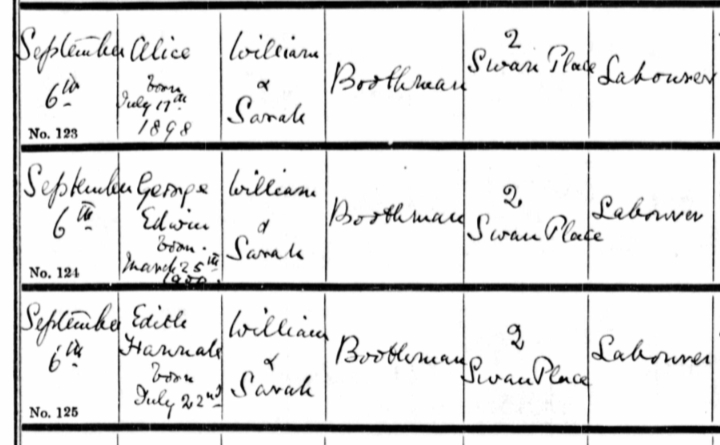 September
6th
No. 123
Alice
born
July 17th
1898
William
&
Sarah
Boothman
2
Swan Place
Labourer
September
6th
No. 124
George
Edwin
born
March 25th
1900.
William
&
Sarah
Boothman
2
Swan Place
Labourer
September
6th
No. 125
Edith
Hannah
born
July 22nd
William
&
Sarah
Boothman
2
Swan Place
Labourer